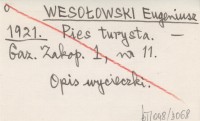 WESOŁOWSKI Eugeniusz
1921. Pies turysta. —
Gaz. Zakop. 1, nr 11.
Opis wycieczki.